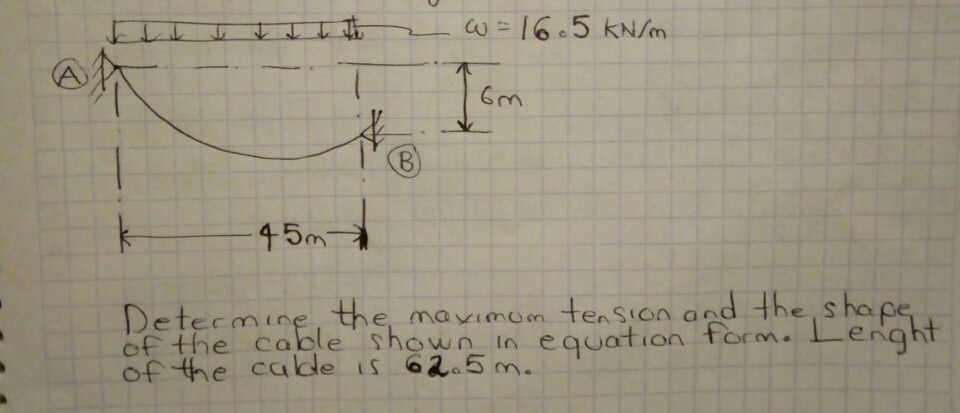 ω = 16.5 kN/m
A
6m
B
45m
Determine the maximum tension and the shape
of the cable shown in equation form. Lenght
of the cable is 62.5 m.